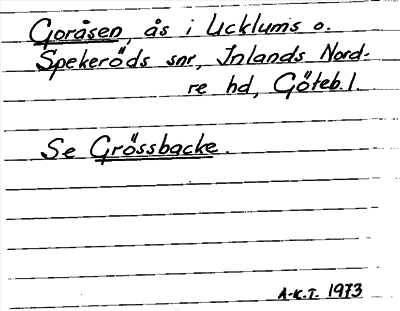 Goråsen, ås i Ucklums o.
Spekeröds snr, Inlands Nord-
re hd, Göteb. l.
Se Grössbacke.
A-K.T. 1973